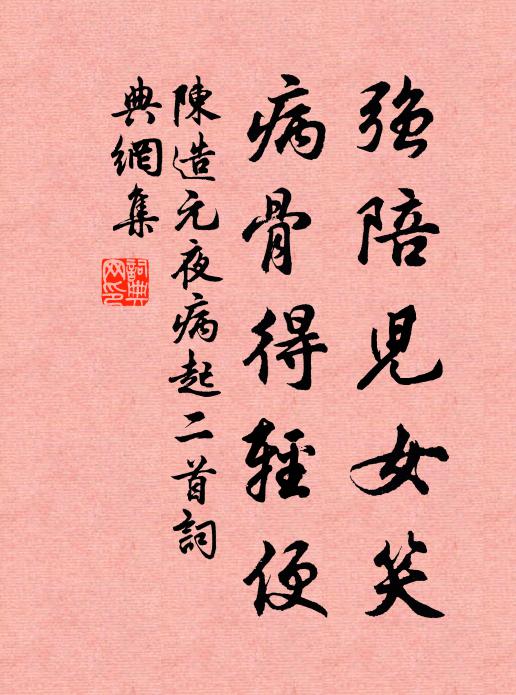 强陪児女笑
病骨得輕便
陳造元夜病起二首詞
典網集
詞典
网印